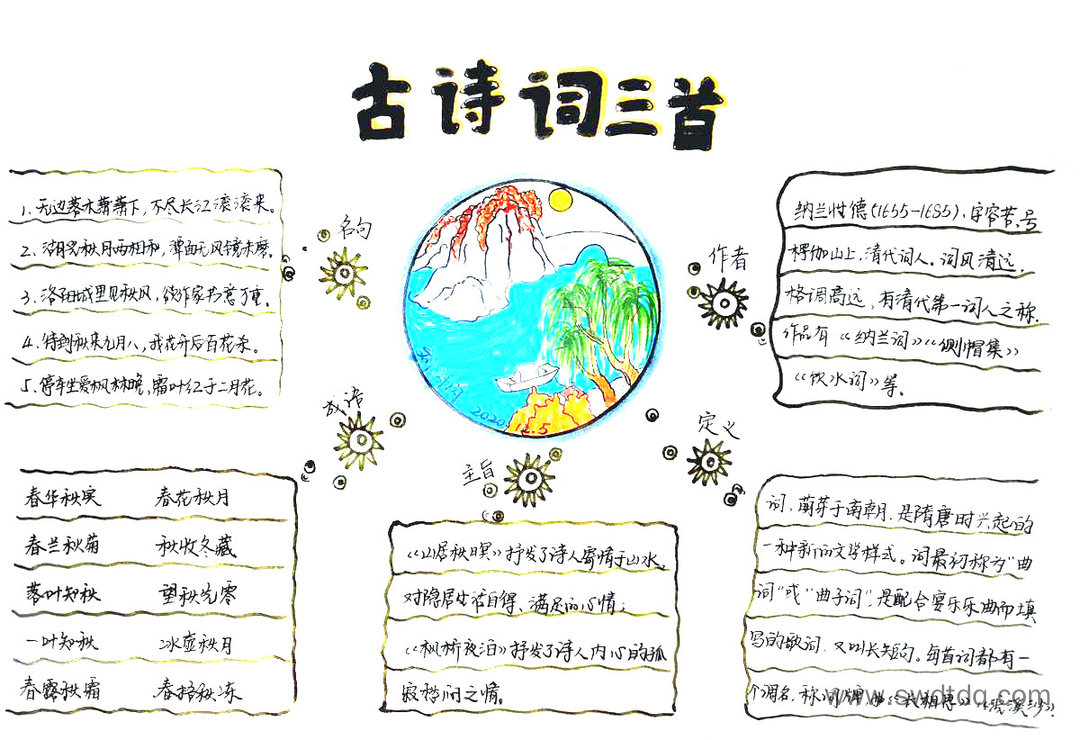 古诗词三首
名句
1、无边落木萧萧下,不尽长江滚滚来。
2、湖光秋月两相和,潭面无风镜未磨。
3、洛阳城里见秋风,欲作家书意万重。
4、待到秋来九月八,我花开后百花杀。
5、停车坐爱枫林晚,霜叶红于二月花。
2020 12.5
作者
纳兰性德(1655-1685),字容若,号
楞伽山上,清代词人。词风清远,
格调高远,有清代第一词人之称.
作品有《纳兰词》《侧帽集》
《饮水词》等.
成语
春华秋实 春花秋月
春兰秋菊 秋收冬藏
落叶知秋 望秋先零
一叶知秋 冰壶秋月
春露秋霜 春捂秋冻
主旨
《山居秋暝》抒发了诗人寄情于山水,
对隐居生活自得、满足的心情;
《枫桥夜泊》抒发了诗人内心的孤
寂愁闷之情。
定义
词,萌芽于南朝,是隋唐时兴起的
一种新的文学样式。词最初称为"曲
词"或"曲子词",是配合宴乐乐曲而填
写的歌词,又叫长短句。每首词都有一
个调名,称 《长相思》《浣溪沙》.
www.swdtdq.com